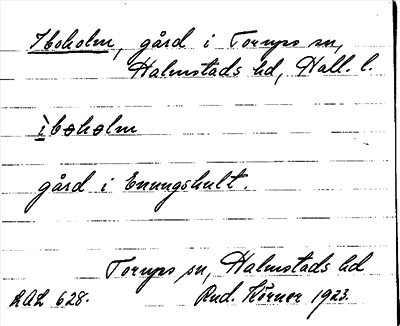 Iboholm, gård i Torups sn,
Halmstads hd, Hall. l.
ìboholm
gård i Enungshult.
Torups sn, Halmstads hd
LAL 628. Rud. Körner 1923.